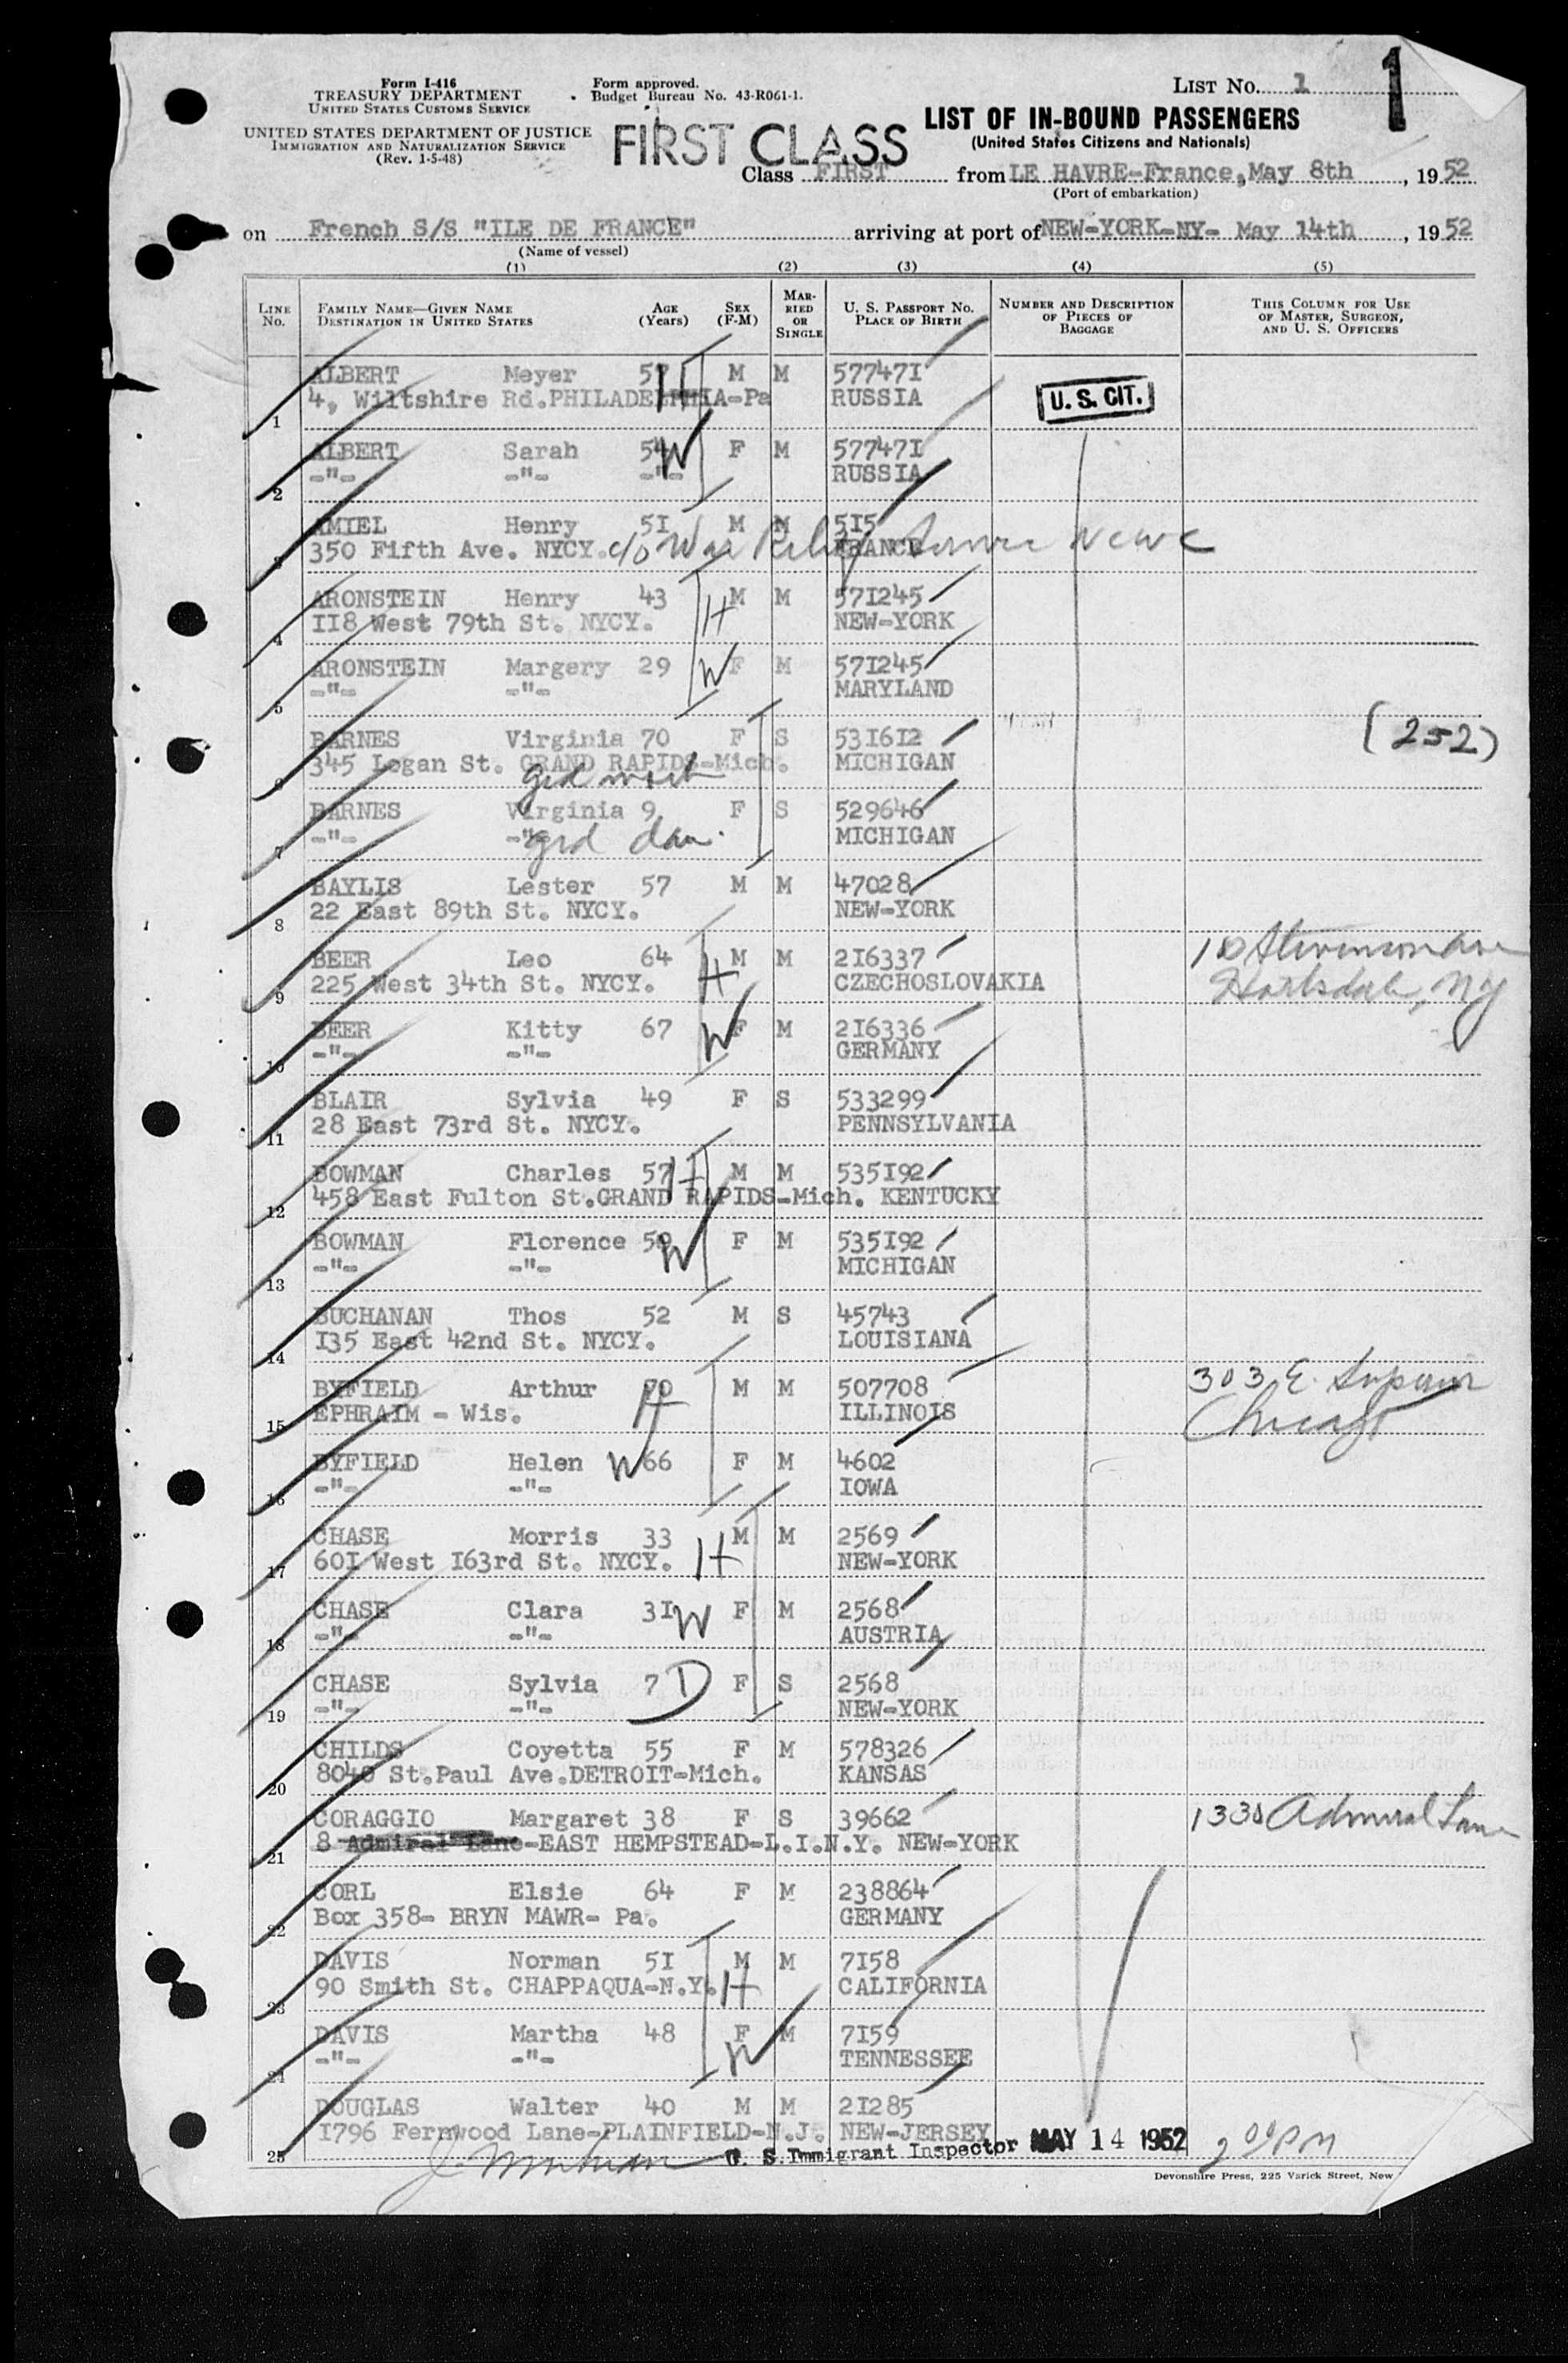 Form I-416
TREASURY DEPARTMENT
UNITED STATES CUSTOMS SERVICE
UNITED STATES DEPARTMENT OF JUSTICE
IMMIGRATION AND NATURALIZATION SERVICE
(Rev. 1-5-48)
Form approved.
Budget Bureau No. 43-R061-1.
FIRST CLASS
LIST NO. 1
1
LIST OF IN-BOUND PASSENGERS
(United States Citizens and Nationals)
Class FIRST from LE HAVRE-France, May 8th, 1952
(Port of embarkation)
on French S/S "ILE DE FRANCE" arriving at port of NEW-YORK-NY- May 14th, 1952
(Name of vessel)
(1) (2) (3) (4) (5)
LINE NO. FAMILY NAME—GIVEN NAME DESTINATION IN UNITED STATES AGE (Years) SEX (F-M) MARRIED OR SINGLE U. S. PASSPORT NO. PLACE OF BIRTH NUMBER AND DESCRIPTION OF PIECES OF BAGGAGE THIS COLUMN FOR USE OF MASTER, SURGEON, AND U. S. OFFICERS
ALBERT Meyer 57 H M M 577471
1 4, Wiltshire Rd.PHILADELPHIA-Pa RUSSIA U. S. CIT.
ALBERT Sarah 54 W F M 577471
2 -"- -"- -"- RUSSIA
AMIEL Henry 51 M M 515
3 350 Fifth Ave. NYCY. c/o War Relief Service NCWC FRANCE
ARONSTEIN Henry 43 H M M 571245
4 118 West 79th St. NYCY. NEW-YORK
ARONSTEIN Margery 29 W F M 571245
5 -"- -"- MARYLAND
BARNES Virginia 70 F S 531612 (252)
6 345 Logan St. GRAND RAPIDS-Mich. MICHIGAN
grd moth
BARNES Virginia 9 F S 529646
7 -"- -"- grd dau. MICHIGAN
BAYLIS Lester 57 M M 47028
8 22 East 89th St. NYCY. NEW-YORK
BEER Leo 64 H M M 216337 10 Stevenson Ave
9 225 West 34th St. NYCY. CZECHOSLOVAKIA Hartsdale, NY
BEER Kitty 67 W F M 216336
10 -"- -"- GERMANY
BLAIR Sylvia 49 F S 533299
11 28 East 73rd St. NYCY. PENNSYLVANIA
BOWMAN Charles 57 H M M 535192
12 458 East Fulton St.GRAND RAPIDS-Mich. KENTUCKY
BOWMAN Florence W F M 535192
13 -"- -"- MICHIGAN
BUCHANAN Thos 52 M S 45743
14 135 East 42nd St. NYCY. LOUISIANA
BYFIELD Arthur 70 H M M 507708 303 E. Superior
15 EPHRAIM - Wis. ILLINOIS Chicago
BYFIELD Helen W 66 F M 4602
16 -"- -"- IOWA
CHASE Morris 33 H M M 2569
17 601 West 163rd St. NYCY. NEW-YORK
CHASE Clara 31 W F M 2568
18 -"- -"- AUSTRIA
CHASE Sylvia 7 D F S 2568
19 -"- -"- NEW-YORK
CHILDS Coyetta 55 F M 578326
20 8040 St.Paul Ave.DETROIT-Mich. KANSAS
CORAGGIO Margaret 38 F S 39662 1338 Admiral Lane
21 8 Admiral Lane-EAST HEMPSTEAD-L.I.N.Y. NEW-YORK
CORL Elsie 64 F M 238864
22 Box 358- BRYN MAWR- Pa. GERMANY
DAVIS Norman 51 M M 7158
23 90 Smith St. CHAPPAQUA-N.Y. H CALIFORNIA
DAVIS Martha 48 F M 7159
24 -"- -"- W TENNESSEE
DOUGLAS Walter 40 M M 21285
25 1796 Fernwood Lane-PLAINFIELD-N.J. NEW-JERSEY
U. S. Immigrant Inspector MAY 14 1952 2 00 PM
Devonshire Press, 225 Varick Street, New